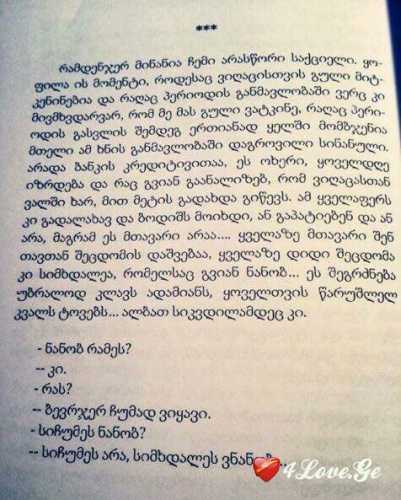 ***
რამდენჯერ მინანია ჩემი არასწორი საქციელი. ყო-
ფილა ის მომენტი, როდესაც ვიღაცისთვის გული მიტ-
კენინებია და რაღაც პერიოდის განმავლობაში ვერც კი
მივმხვდარვარ, რომ მე მას გული ვატკინე, რაღაც პერი-
ოდის გასვლის შემდეგ ერთიანად ყელში მომბჯენია
მთელი ამ ხნის განმავლობაში დაგროვილი სინანული.
არადა ბანკის კრედიტივითაა, ეს ოხერი, ყოველდღე
იზრდება და რაც გვიან გაანალიზებ, რომ ვიღაცასთან
ვალში ხარ, მით მეტის გადახდა გიწევს. ამ ყველაფერს
კი გადალახავ და ბოდიშს მოიხდი, ან გაპატიებენ და ან
არა, მაგრამ ეს მთავარი არაა.... ყველაზე მთავარი შენ
თავთან შეცდომის დაშვებაა, ყველაზე დიდი შეცდომა
კი სიმხდალეა, რომელსაც გვიან ნანობ... ეს შეგრძნება
უბრალოდ კლავს ადამიანს, ყოველთვის წარუშლელ
კვალს ტოვებს... ალბათ სიკვდილამდეც კი.
- ნანობ რამეს?
-- კი.
- რას?
-- ბევრჯერ ჩუმად ვიყავი.
- სიჩუმეს ნანობ?
-- სიჩუმეს არა, სიმხდალეს ვნანობ...
4Love.Ge